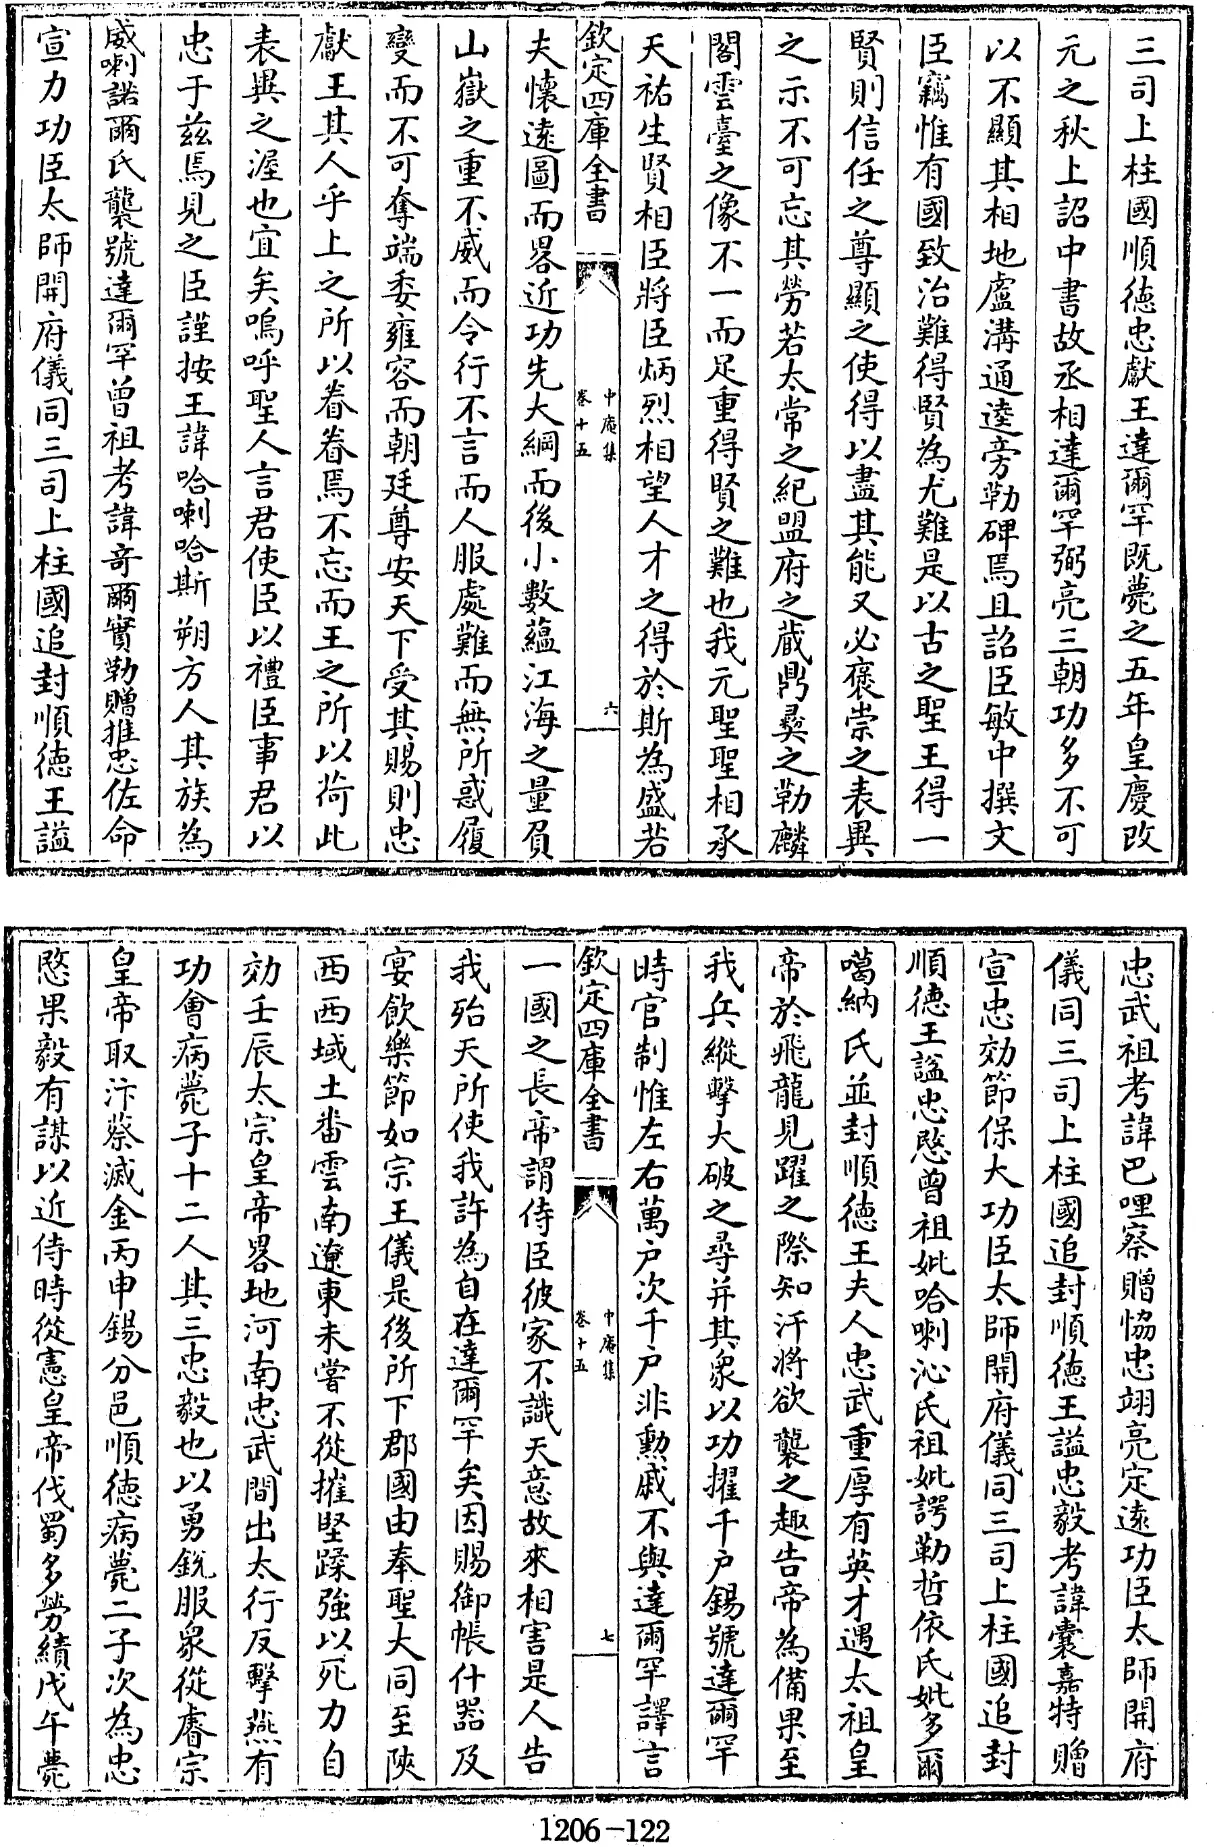 三司上柱國順徳忠獻王達爾罕既薨之五年皇慶改
元之秋上詔中書故丞相達爾罕弼亮三朝功多不可
以不顯其相地盧溝通逵旁勒碑焉且詔臣敏中撰文
臣竊惟有國致治難得賢為尤難是以古之聖王得一
賢則信任之尊顯之使得以盡其能又必褒崇之表異
之示不可忘其勞若太常之紀盟府之蔵鼎彛之勒麟
閣雲臺之像不一而足重得賢之難也我元聖聖相承
天祐生賢相臣將臣炳烈相望人才之得於斯為盛若
欽定四庫全書
中庵集
卷十五
六
夫懐逺圖而畧近功先大綱而後小數蘊江海之量負
山嶽之重不威而令行不言而人服處難而無所惑履
變而不可奪端委雍容而朝廷尊安天下受其賜則忠
獻王其人乎上之所以眷眷焉不忘而王之所以荷此
表異之渥也宜矣嗚呼聖人言君使臣以禮臣事君以
忠于兹焉見之臣謹按王諱哈喇哈斯朔方人其族為
威喇諾爾氏襲號達爾罕曽祖考諱竒爾實勒贈推忠佐命
宣力功臣太師開府儀同三司上柱國追封順徳王諡
忠武祖考諱巴哩察贈協忠翊亮定逺功臣太師開府
儀同三司上柱國追封順徳王諡忠毅考諱囊嘉特贈
宣忠効節保大功臣太師開府儀同三司上柱國追封
順徳王諡忠愍曽祖妣哈喇沁氏祖妣諤勒哲依氏妣多爾
噶納氏並封順徳王夫人忠武重厚有英才遇太祖皇
帝於飛龍見躍之際知汗將欲襲之趣告帝為備果至
我兵縱擊大破之尋并其衆以功擢千户錫號達爾罕
時官制惟左右萬户次千户非勲戚不與達爾罕譯言
欽定四庫全書
中庵集
卷十五
七
一國之長帝謂侍臣彼家不識天意故來相害是人告
我殆天所使我許為自在達爾罕矣因賜御帳什器及
宴飲樂節如宗王儀是後所下郡國由奉聖大同至陜
西西域土番雲南遼東未嘗不從摧堅蹂強以死力自
効壬辰太宗皇帝畧地河南忠武間出太行反擊燕有
功會病薨子十二人其三忠毅也以勇鋭服衆從睿宗
皇帝取汴蔡滅金丙申錫分邑順徳病薨二子次為忠
愍果毅有謀以近侍時從憲皇帝伐蜀多勞績戊午薨
1206-122